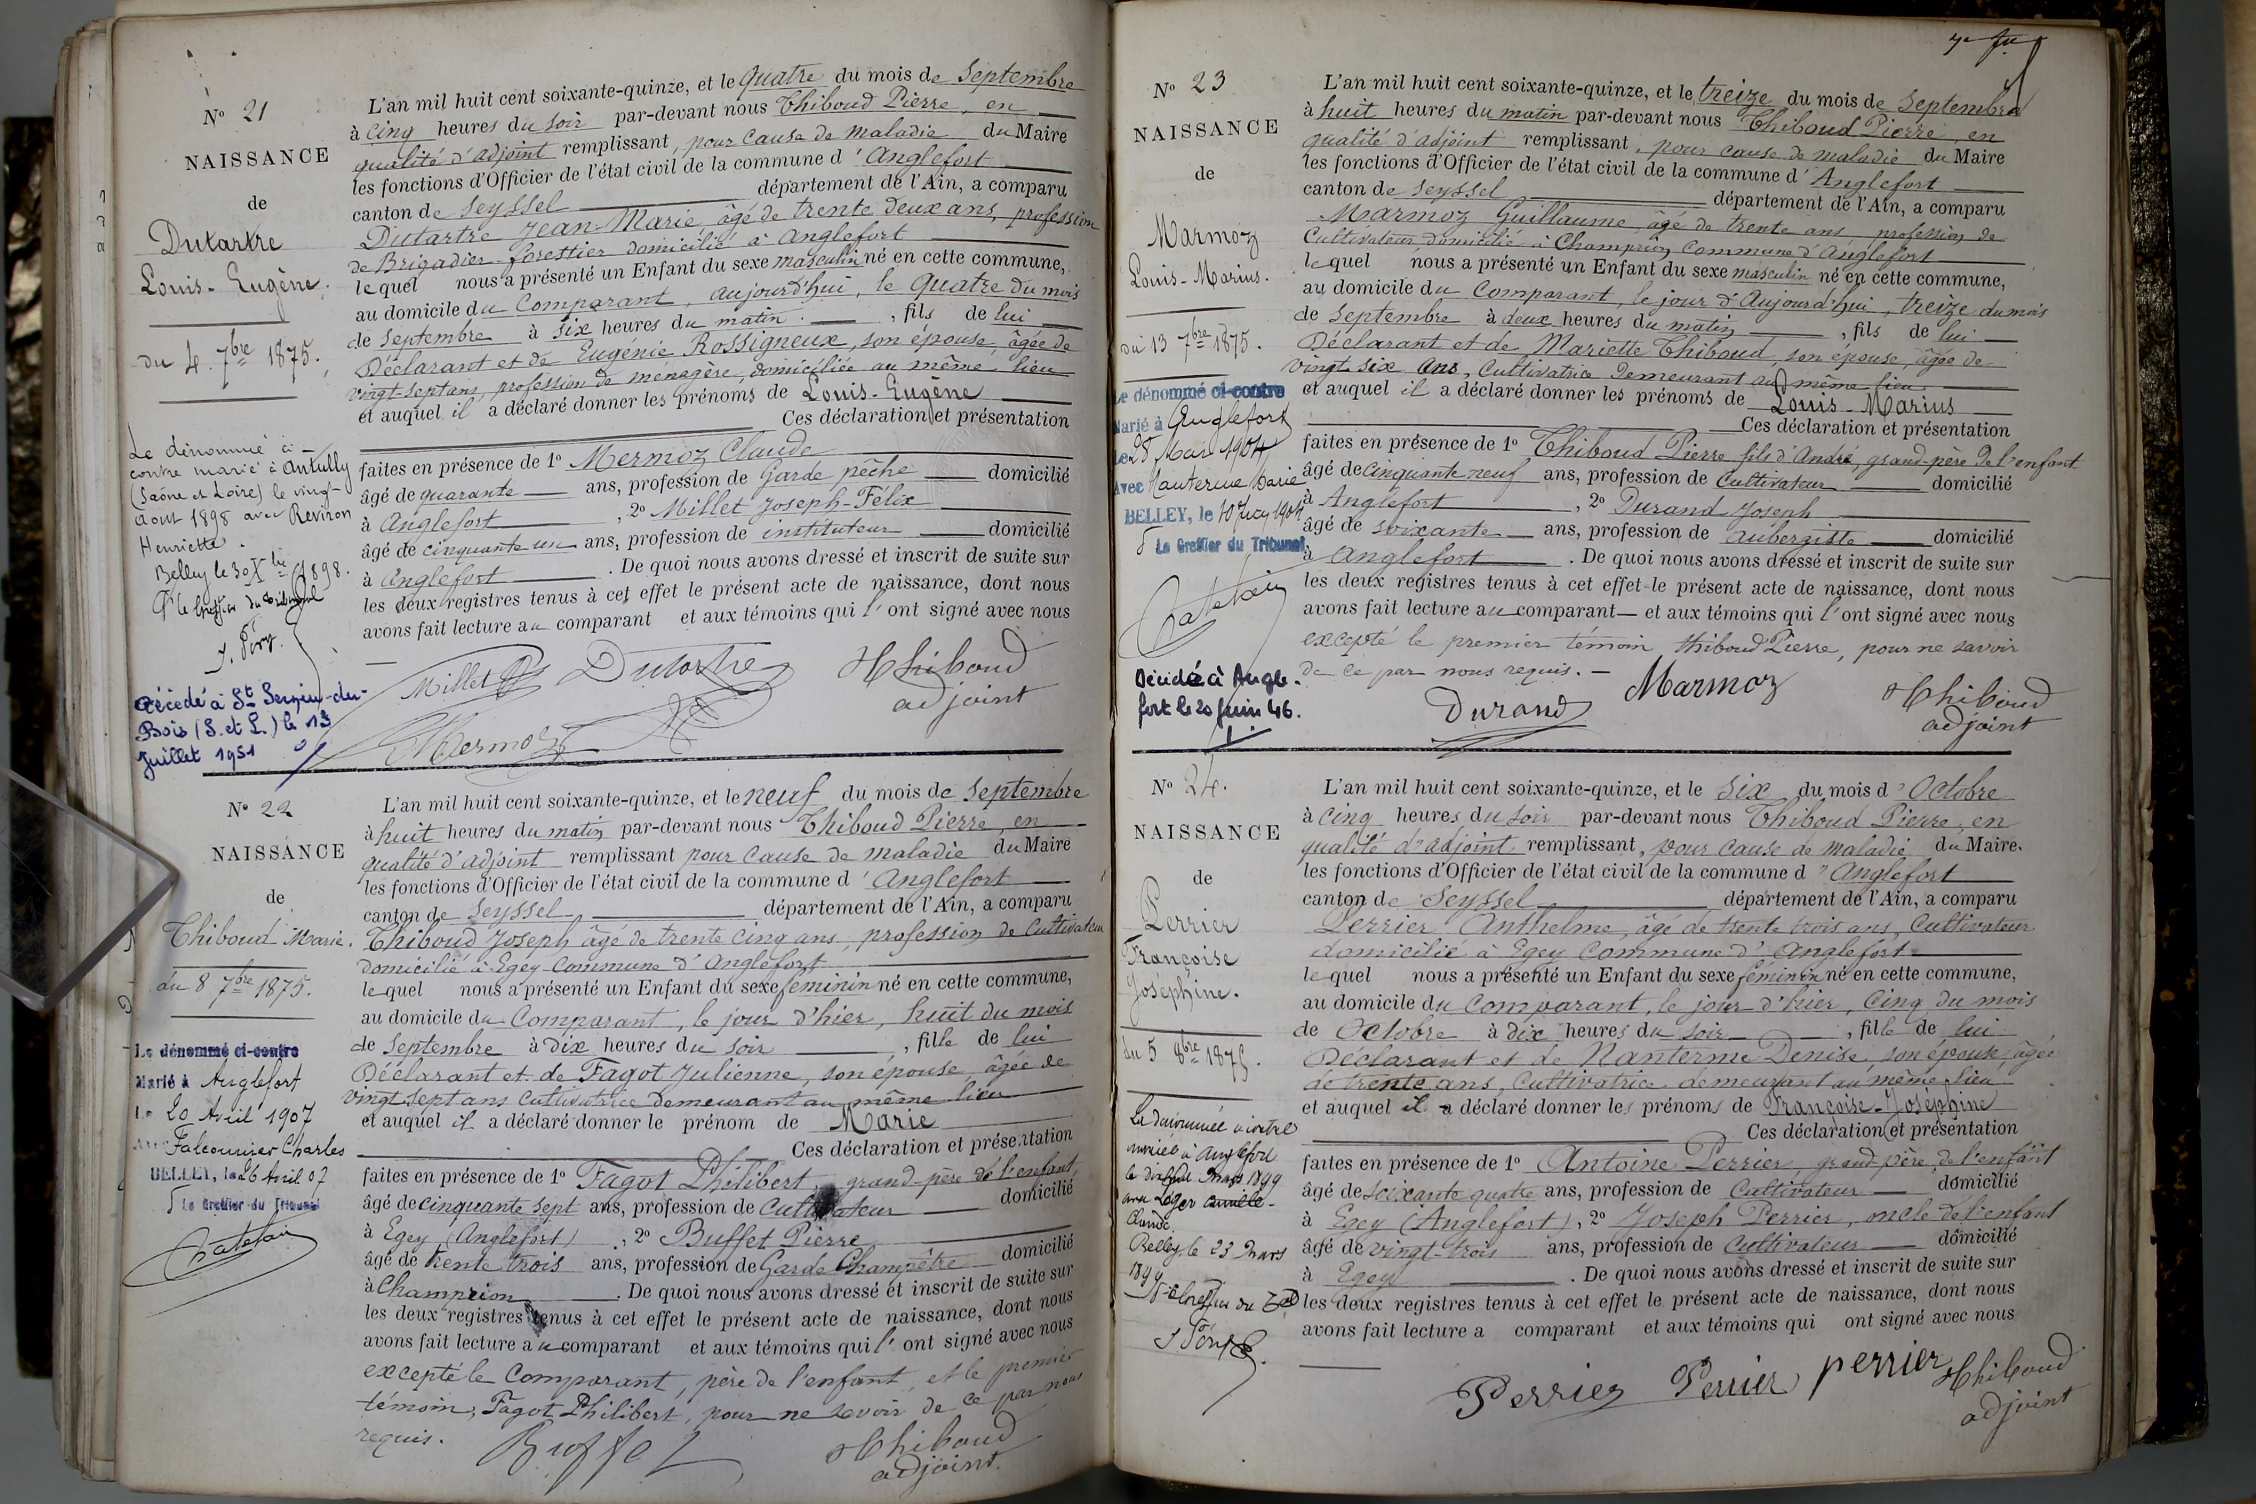 N° 21
NAISSANCE
de
Dutartre
Louis-Eugène.
du 4. 7bre 1875.
Le dénommé ci-
contre marié à Antully
(Saône et Loire) le vingt
août 1898 avec Reviron
Henriette.
Belley le 30 Xbre 1898.
Pr le Greffier du Tribunal
Décédé à St Sernin-du-
Bois (S. et L.) le 13
Juillet 1951
L'an mil huit cent soixante-quinze, et le quatre du mois de Septembre
à cinq heures du soir par-devant nous Thiboud Pierre, en
qualité d'adjoint remplissant, pour cause de maladie du Maire
les fonctions d'Officier de l'état civil de la commune d'Anglefort
canton de Seyssel département de l'Ain, a comparu
Dutartre Jean-Marie âgé de trente deux ans, profession
de Brigadier-forestier domicilié à Anglefort
lequel nous a présenté un Enfant du sexe masculin né en cette commune,
au domicile du Comparant, aujourd'hui, le quatre du mois
de Septembre à six heures du matin. , fils de lui
Déclarant et de Eugénie Rossigneux, son épouse, âgée de
vingt-sept ans, profession de ménagère, domiciliée au même lieu
et auquel il a déclaré donner les prénoms de Louis-Eugène
Ces déclaration et présentation
faites en présence de 1° Mermoz Claude
âgé de quarante ans, profession de Garde pêche domicilié
à Anglefort , 2° Millet Joseph-Félix
âgé de cinquante un ans, profession de instituteur domicilié
à Anglefort . De quoi nous avons dressé et inscrit de suite sur
les deux registres tenus à cet effet le présent acte de naissance, dont nous
avons fait lecture au comparant et aux témoins qui l'ont signé avec nous
Millet Dutartre Thiboud
adjoint
Mermoz
N° 22
NAISSANCE
de
Thiboud Marie.
du 8 7bre 1875.
Le dénommé ci-contre
Marié à Anglefort
Le 20 Avril 1907
Avec Falconnier Charles
BELLEY, le 26 Avril 07
Pr Le Greffier du Tribunal
L'an mil huit cent soixante-quinze, et le neuf du mois de Septembre
à huit heures du matin par-devant nous Thiboud Pierre, en
qualité d'adjoint remplissant pour cause de maladie du Maire
les fonctions d'Officier de l'état civil de la commune d'Anglefort
canton de Seyssel département de l'Ain, a comparu
Thiboud Joseph âgé de trente cinq ans, profession de Cultivateur
domicilié à Egey Commune d'Anglefort
lequel nous a présenté un Enfant du sexe féminin né en cette commune,
au domicile du Comparant, le jour d'hier, huit du mois
de Septembre à dix heures du soir , fille de lui
Déclarant et de Fagot Julienne, son épouse, âgée de
vingt sept ans Cultivatrice demeurant au même lieu
et auquel il a déclaré donner le prénom de Marie
Ces déclaration et présentation
faites en présence de 1° Fagot Philibert, grand-père de l'enfant,
âgé de cinquante sept ans, profession de Cultivateur domicilié
à Egey (Anglefort) , 2° Buffet Pierre
âgé de trente trois ans, profession de Garde Champêtre domicilié
à Champrion . De quoi nous avons dressé et inscrit de suite sur
les deux registres tenus à cet effet le présent acte de naissance, dont nous
avons fait lecture au comparant et aux témoins qui l'ont signé avec nous
excepté le Comparant, père de l'enfant, et le premier
témoin, Fagot Philibert, pour ne savoir de ce par nous
requis.
Buffet Thiboud
adjoint.
N° 23
NAISSANCE
de
Marmoz
Louis-Marius.
du 13 7bre 1875.
Le dénommé ci-contre
Marié à Anglefort
Le 28 Mai 1904
Avec Nanterme Marie
BELLEY, le 10 Juin 1904
Pr Le Greffier du Tribunal
Décédé à Angle-
fort le 20 Juin 46.
L'an mil huit cent soixante-quinze, et le treize du mois de Septembre
à huit heures du matin par-devant nous Thiboud Pierre, en
qualité d'adjoint remplissant, pour cause de maladie du Maire
les fonctions d'Officier de l'état civil de la commune d'Anglefort
canton de Seyssel département de l'Ain, a comparu
Marmoz Guillaume, âgé de trente ans, profession de
Cultivateur domicilié à Champrion Commune d'Anglefort
lequel nous a présenté un Enfant du sexe masculin né en cette commune,
au domicile du Comparant, le jour d'Aujourd'hui, treize du mois
de Septembre à deux heures du matin , fils de lui
Déclarant et de Mariette Thiboud, son épouse, âgée de
vingt six ans, Cultivatrice demeurant au même lieu.
et auquel il a déclaré donner les prénoms de Louis-Marius
Ces déclaration et présentation
faites en présence de 1° Thiboud Pierre fils d'André, grand-père de l'enfant
âgé de cinquante neuf ans, profession de Cultivateur domicilié
à Anglefort , 2° Durand Joseph
âgé de soixante ans, profession de aubergiste domicilié
à Anglefort . De quoi nous avons dressé et inscrit de suite sur
les deux registres tenus à cet effet le présent acte de naissance, dont nous
avons fait lecture au comparant et aux témoins qui l'ont signé avec nous
excepté le premier témoin, thiboud Pierre, pour ne savoir
de ce par nous requis.
Durand Marmoz Thiboud
adjoint
N° 24.
NAISSANCE
de
Perrier
Françoise
Joséphine.
du 5 8bre 1875.
La dénommée ci-contre
mariée à Anglefort
le dix huit Mars 1899
avec Loger
Claude.
Belley le 23 Mars
1899
Pr le Greffier du Tal
L'an mil huit cent soixante-quinze, et le six du mois d'Octobre
à cinq heures du soir par-devant nous Thiboud Pierre, en
qualité d'adjoint remplissant, pour cause de maladie du Maire.
les fonctions d'Officier de l'état civil de la commune d'Anglefort
canton de Seyssel département de l'Ain, a comparu
Perrier Anthelme, âgé de trente trois ans, Cultivateur
domicilié à Egey Commune d'Anglefort
lequel nous a présenté un Enfant du sexe féminin né en cette commune,
au domicile du Comparant, le jour d'hier, Cinq du mois
de Octobre à dix heures du soir , fille de lui
Déclarant et de Nanterme Denise, son épouse, âgée
de trente ans, Cultivatrice demeurant au même lieu
et auquel il a déclaré donner les prénoms de Françoise-Joséphine
Ces déclaration et présentation
faites en présence de 1° Antoine Perrier, grand-père de l'enfant
âgé de soixante quatre ans, profession de Cultivateur domicilié
à Egey (Anglefort), 2° Joseph Perrier, oncle de l'enfant
âgé de vingt-trois ans, profession de Cultivateur domicilié
à Egey . De quoi nous avons dressé et inscrit de suite sur
les deux registres tenus à cet effet le présent acte de naissance, dont nous
avons fait lecture a comparant et aux témoins qui ont signé avec nous
Perrier Perrier perrier Thiboud
adjoint